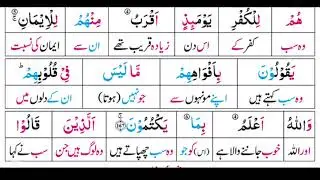 هُمْ لِلْكُفْرِ يَوْمَىِٕذٍ اَقْرَبُ مِنْهُمْ لِلْاِیْمَانِ ۚ
وہ سب کفر کے اس دن زیادہ قریب تھے ان سے ایمان کی نسبت
یَقُوْلُوْنَ بِاَفْوَاهِهِمْ مَّا لَیْسَ فِیْ قُلُوْبِهِمْ ؕ
وہ سب کہتے ہیں اپنے مونہوں سے جو نہیں (ہوتا) ان کے دلوں میں
وَاللّٰهُ اَعْلَمُ بِمَا یَكْتُمُوْنَ ۚ اَلَّذِیْنَ قَالُوْا
اور اللہ خوب جاننے والا ہے (اس) کو جو وہ سب چھپاتے ہیں وہ لوگ ہیں جن سب نے کہا